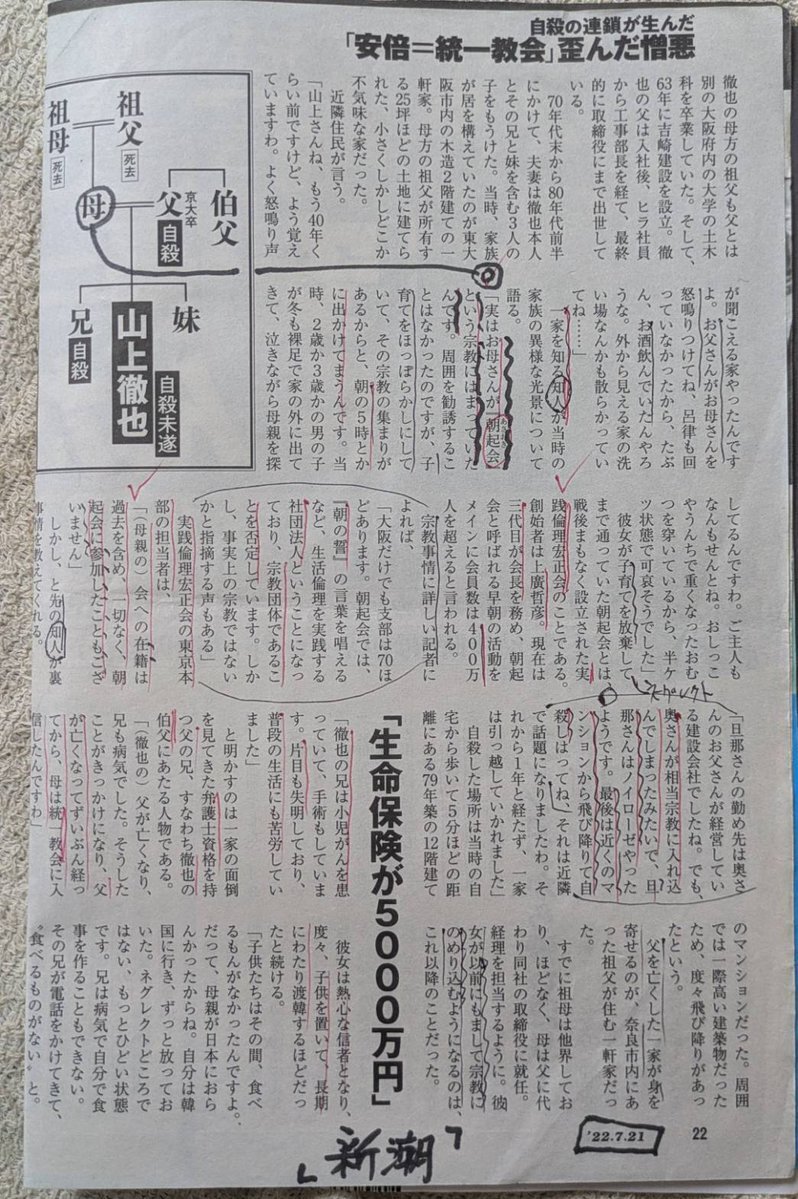 自殺の連鎖が生んだ
「安倍=統一教会」歪んだ憎悪
徹也の母方の祖父も父とは
別の大阪府内の大学の土木
科を卒業していた。そして、
63年に吉崎建設を設立。徹
也の父は入社後、ヒラ社員
から工事部長を経て、最終
的に取締役にまで出世して
いる。
70年代末から80年代前半
にかけて、夫妻は徹也本人
とその兄と妹を含む3人の
子をもうけた。当時、家族
が居を構えていたのが東大
阪市内の木造2階建ての一
軒家。母方の祖父が所有す
る25坪ほどの土地に建てら
れた、小さくしかしどこか
不気味な家だった。
近隣住民が言う。
「山上さんね、もう40年く
らい前ですけど、よう覚え
ていますわ。よく怒鳴り声
祖父
死去
祖母
死去
母
伯父
父
京大卒
自殺
妹
山上徹也
自殺未遂
兄
自殺
が聞こえる家やったんです
よ。お父さんがお母さんを
怒鳴りつけてね、呂律も回
っていなかったから、たぶ
ん、お酒飲んでいたんやろ
うな。外から見える家の洗
い場なんかも散らかってい
てね……」
一家を知る知人が当時の
家族の異様な光景について
語る。
「実はお母さんが、朝起会
という宗教にはまっていた
んです。周囲を勧誘するこ
とはなかったのですが、子
育てをほっぽらかしにして
いて、その宗教の集まりが
あるからと、朝の5時とか
に出かけてまうんです。当
時、2歳か3歳かの男の子
が冬も裸足で家の外に出て
きて、泣きながら母親を探
してるんですわ。ご主人も
なんもせんとね。おしっこ
やうんちで重くなったおむ
つを穿いているから、半ケ
ツ状態で可哀そうでした」
彼女が子育てを放棄して
まで通っていた朝起会とは、
戦後まもなく設立された実
践倫理宏正会のことである。
創始者は上廣哲彦。現在は
三代目が会長を務め、朝起
会と呼ばれる早朝の活動を
メインに会員数は400万
人を超えると言われる。
宗教事情に詳しい記者に
よれば、
「大阪だけでも支部は70ほ
どあります。朝起会では、
『朝の誓』の言葉を唱える
など、生活倫理を実践する
社団法人ということになっ
ており、宗教団体であるこ
とを否定しています。しか
し、事実上の宗教ではない
かと指摘する声もある」
実践倫理宏正会の東京本
部の担当者は、
「(母親の)会への在籍は
過去を含め、一切なく、朝
起会に参加したこともござ
いません」
しかし、と先の知人が裏
事情を教えてくれる。
ネグレクト
「旦那さんの勤め先は奥さ
んのお父さんが経営してい
る建設会社でしたね。でも、
奥さんが相当宗教に入れ込
んでしまったみたいで、旦
那さんはノイローゼやった
ようです。最後は近くのマ
ンションから飛び降りて自
殺しはってね、それは近隣
で話題になりましたわ。そ
れから1年と経たず、一家
は引っ越していかれました」
自殺した場所は当時の自
宅から歩いて5分ほどの距
離にある79年築の12階建て
「生命保険が5000万円」
「徹也の兄は小児がんを患
っていて、手術もしていま
す。片目も失明しており、
普段の生活にも苦労してい
ました」
と明かすのは一家の面倒
を見てきた弁護士資格を持
つ父の兄、すなわち徹也の
伯父にあたる人物である。
「(徹也の)父が亡くなり、
兄も病気でした。そうした
ことがきっかけになり、父
が亡くなってずいぶん経っ
てから、母は統一教会に入
信したんですわ」
のマンションだった。周囲
では一際高い建築物だった
ため、度々飛び降りがあっ
たという。
父を亡くした一家が身を
寄せるのが、奈良市内にあ
った祖父が住む一軒家だっ
た。
すでに祖母は他界してお
り、ほどなく、母は父に代
わり同社の取締役に就任。
経理を担当するように。彼
女が以前にもまして宗教に
のめり込むようになるのは、
これ以降のことだった。
彼女は熱心な信者となり、
度々、子供を置いて、長期
にわたり渡韓するほどだっ
たと続ける。
「子供たちはその間、食べ
るもんがなかったんですよ。
だって、母親が日本におら
んかったからね。自分は韓
国に行き、ずっと放ってお
いた。ネグレクトどころで
はない、もっとひどい状態
です。兄は病気で自分で食
事を作ることもできない。
その兄が電話をかけてきて、
“食べるものがない”と。
「新潮」
'22.7.21
22